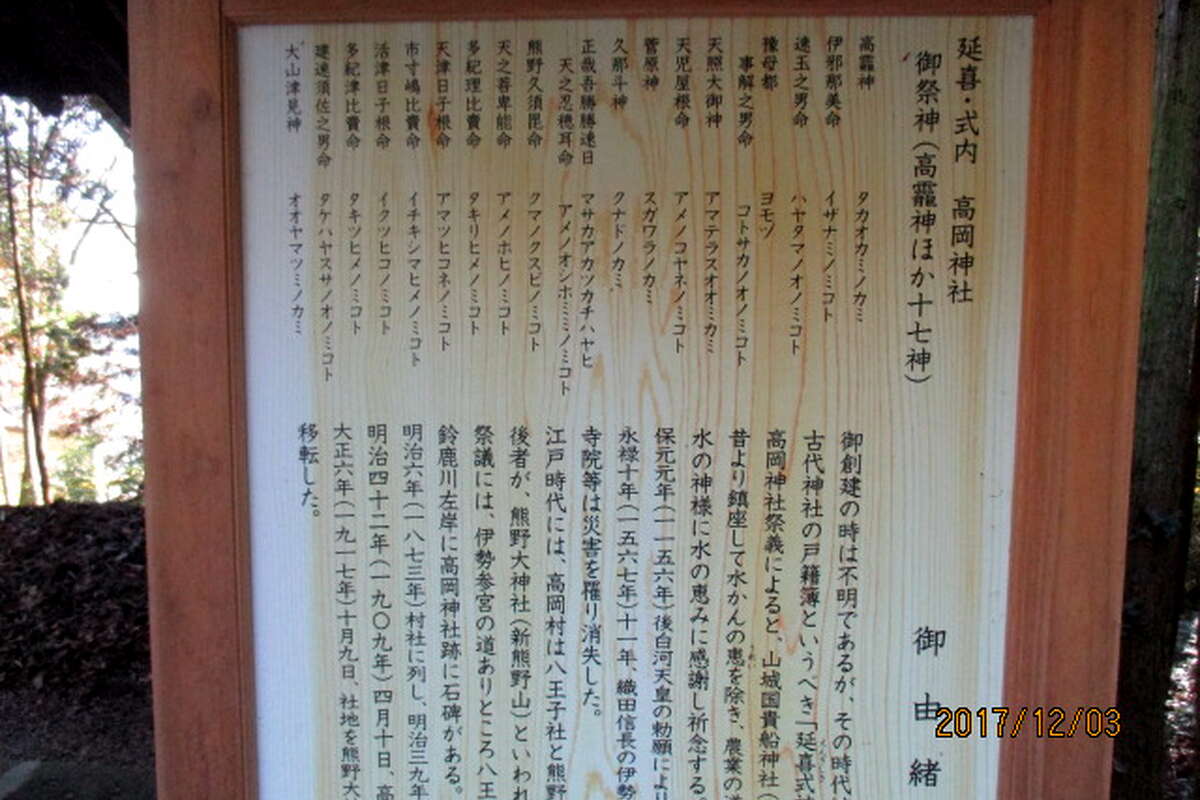 延喜・式内 高岡神社
御祭神(高龗神ほか十七神)
高龗神 タカオカミノカミ
伊邪那美命 イザナミノミコト
速玉之男命 ハヤタマノオノミコト
豫母都 ヨモツ
事解之男命 コトサカノオノミコト
天照大御神 アマテラスオオミカミ
天児屋根命 アメノコヤネノミコト
菅原神 スガワラノカミ
久那斗神 クナドノカミ
正哉吾勝勝速日 マサカアカツカチハヤヒ
天之忍穂耳命 アメノオシホミミノミコト
熊野久須毘命 クマノクスビノミコト
天之菩卑能命 アメノホヒノミコト
多紀理比賣命 タキリヒメノミコト
天津日子根命 アマツヒコネノミコト
市寸嶋比賣命 イチキシマヒメノミコト
活津日子根命 イクツヒコノミコト
多紀津比賣命 タキツヒメノミコト
建速須佐之男命 タケハヤスサノオノミコト
大山津見神 オオヤマツミノカミ
御由緒
御創建の時は不明であるが、その時代
古代神社の戸籍簿というべき「延喜式
高岡神社祭義によると、山城国貴船神社(
昔より鎮座して水かんの恵を除き、農業の
水の神様に水の恵みに感謝し祈念する。
保元元年(一一五六年)後白河天皇の勅願により
永禄十年(一五六七年)十一年、織田信長の伊勢
寺院等は災害を罹り消失した。
江戸時代には、高岡村は八王子社と熊野
後者が、熊野大神社(新熊野山)といわれ
祭議には、伊勢参宮の道ありところ八王
鈴鹿川左岸に高岡神社跡に石碑がある。
明治六年(一八七三年)村社に列し、明治三九年
明治四十二年(一九〇九年)四月十日、高
大正六年(一九一七年)十月九日、社地を熊野大
移転した。
2017/12/03